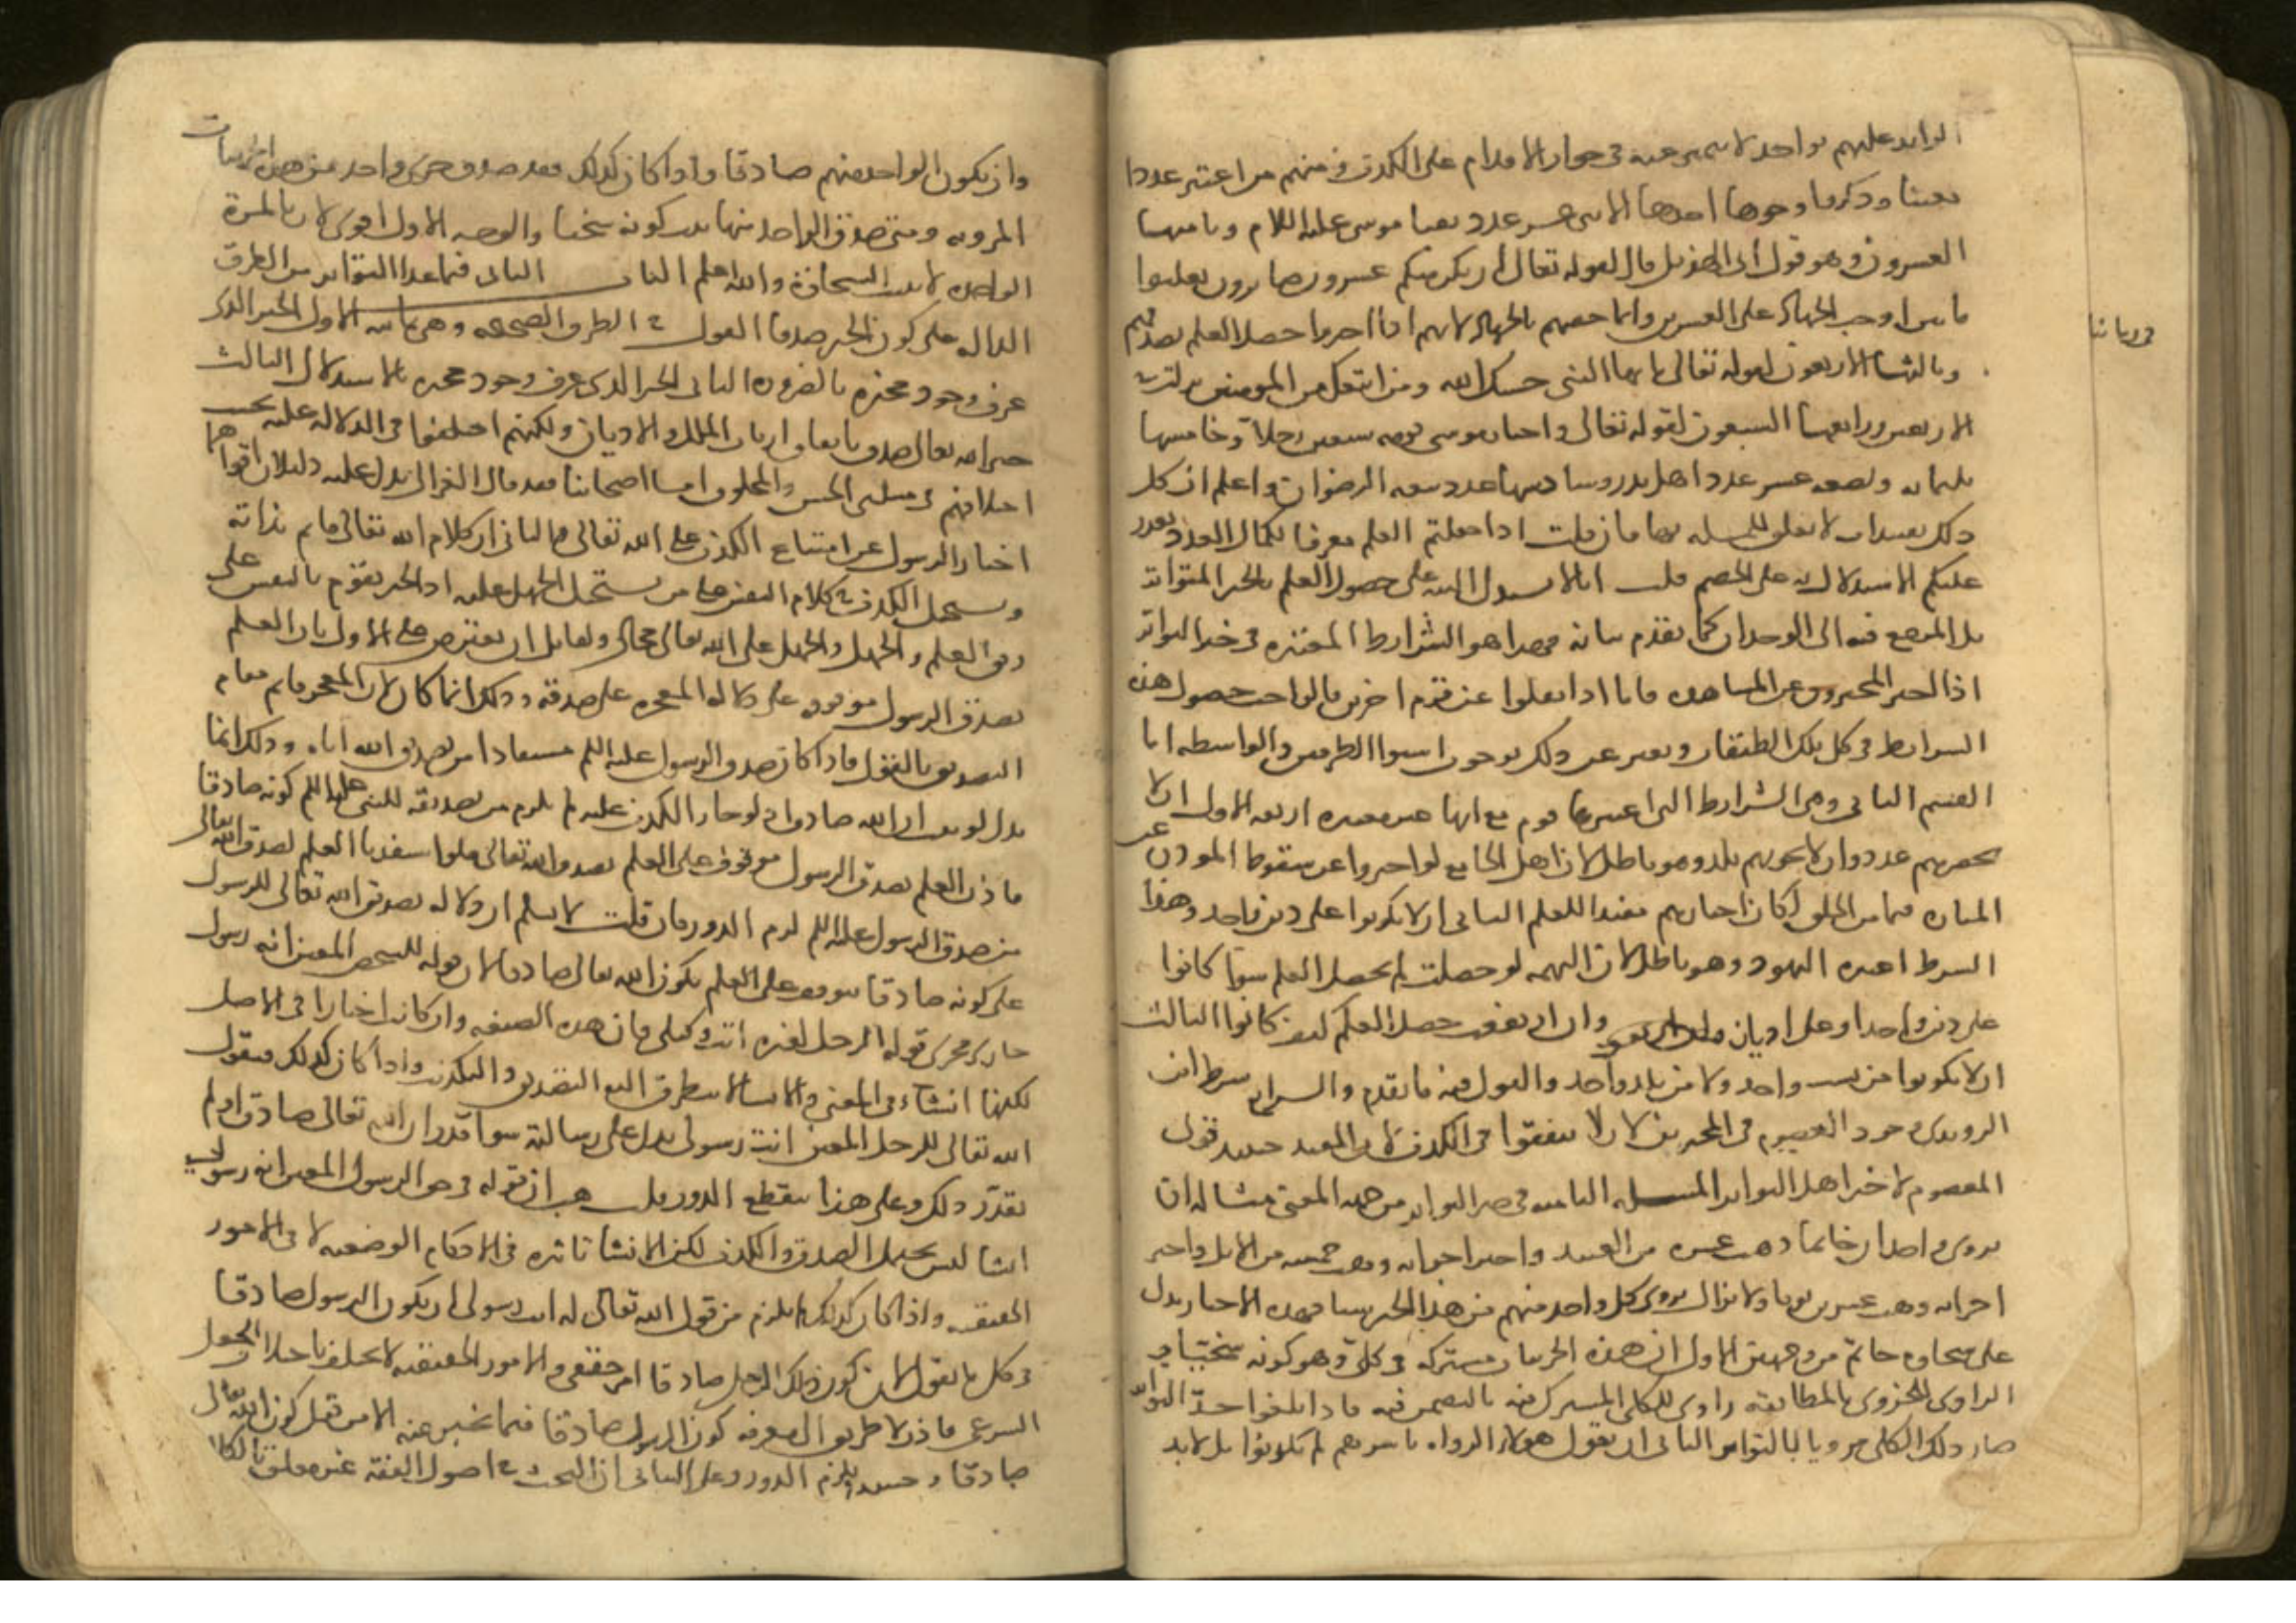 الزايد عليهم بواحد لا يتميز عنه في جواز الاقدام على الكذب ومنهم من اعتبر عددا
معينا وذكروا وجوها احدها الاثنى عشر عدد نقبا موسى عليه السلام وثانيها
العشرون وهو قول ابى الهذيل قال لقوله تعالى ان يكن منكم عشرون صابرون يغلبوا
مايتين اوجب الجهاد على العشرين وانما خصهم بالجهاد لانهم اذا اخبروا حصل العلم بصدقهم
وثالثها الاربعون لقوله تعالى يا ايها النبى حسبك الله ومن اتبعك من المومنين نزلت في
الاربعين ورابعها السبعون لقوله تعالى واختار موسى قومه سبعين رجلا وخامسها
ثلثمايه وبضعه عشر عدد اهل بدر وسادسها عدد بيعه الرضوان واعلم ان كل
ذلك تقييدات لا تعلق للمسله بها فان قلت اذا جعلتم العلم معرفا لكمال العدد تعذر
عليكم الاستدلال به على الخصم قلت انا لا نستدل البته على حصول العلم بالخبر المتواتر
بل المرجع فيه الى الوجدان كما تقدم بيانه فهذا هو الشرايط المعتبره في خبر التواتر
اذا اخبر المخبرون عن المشاهده فاما اذا نقلوا عن قوم اخرين فالواجب حصول هذه
الشرايط في كل تلك الطبقات ويعبر عن ذلك بوجوب استوا الطرفين والواسطه اما
القسم الثانى وهى الشرايط التى اعتبرها قوم مع انها غير معتبره اربعه الاول ان لا
يحصرهم عدد وان لا يحويهم بلد وهو باطل لان اهل الجامع لو اخبروا عن سقوط الموذن عن
المناره فيما بين الخلق لكان اخبارهم مفيدا للعلم الثانى ان لا يكونوا على دين واحد وهذا
الشرط اعتبره اليهود وهو باطل لان التهمه لو حصلت لم يحصل العلم سوا كانوا
على دين واحد او على اديان وان ارتفعت حصل العلم كيف كانوا الثالث
ان لا يكونوا من نسب واحد ولا من بلد واحد والقول فيه ما تقدم والرابع شرط ابن
الروندى وجود المعصوم في المخبرين لان لا يتفقوا في الكذب المفيد حينيذ قول
المعصوم لا خبر اهل التواتر المسله الثامنه في خبر التواتر من جهه المعنى مثاله ان
يروى واحد ان حاتما وهب عشره من العبيد واخبر اخر انه وهب خمسه من الابل واخبر
اخر انه وهب عشرين ثوبا ولا يزال يروى كل واحد منهم من هذا الجنس شيا فهذه الاخبار تدل
على سخاوه حاتم من وجهين الاول ان هذه الجزييات مشتركه في كلى وهو كونه سخيا
الراوى للجزوى بالمطابقه راوى للكلى المشترك فيه بالتضمن فاذا بلغوا حد التواتر
صار ذلك الكلى مرويا بالتواتر الثانى ان نقول هولا الرواه باسرهم لم يكذبوا بل لا بد
في
وان يكون الواحد منهم صادقا واذا كان كذلك فقد صدق جزى واحد من هذه الجزييات
المرويه ومتى صدق الواحد منها ثبت كونه سخيا والوجه الاول اقوى لان بالمرة
الواحده لا تثبت السخاوة والله اعلم الباب الثانى فيما عدا التواتر من الطرق
الداله على كون الخبر صدقا القول في الطرق الصحيحه وهى ثمانيه الاول الخبر الذى
عرف وجود مخبره بالضروره الثانى الخبر الذى عرف وجود مخبره بالاستدلال الثالث
خبر الله تعالى صدق باتفاق ارباب الملل والاديان ولكنهم اختلفوا في الدلاله عليه بحسب
اختلافهم في مسلتى الحسن والمخلوق اما اصحابنا فقد قال الغزالى يدل عليه دليلان اقواهما
اخبار الرسول عن امتناع الكذب على الله تعالى والثانى ان كلام الله تعالى قايم بذاته
ويستحيل الكذب في كلام النفس على من يستحيل الجهل عليه اذ الخبر يقوم بالنفس على
وفق العلم والجهل والجهل على الله تعالى محال ولقايل ان يعترض على الاول بان العلم
بصدق الرسول موقوف على دلاله المعجزه على صدقه وذلك انما كان لان المعجز قايم مقام
التصديق بالقول فاذا كان صدق الرسول عليه السلم مستفادا من تصديق الله اياه وذلك انما
يدل لو ثبت ان الله صادق اذ لو جاز الكذب عليه لم يلزم من تصديقه للنبى عليه السلم كونه صادقا
فاذن العلم بصدق الرسول موقوف على العلم بصدق الله تعالى فلو استفدنا العلم بصدق الله تعالى
من صدق الرسول عليه السلم لزم الدور فان قلت لا نسلم ان دلاله تصديق الله تعالى للرسول
على كونه صادقا يتوقف على العلم بكون الله تعالى صادقا لان قوله للشخص المعين انه رسول
جار مجرى قول الرجل لغيره انت وكيلى فان هذه الصيغه وان كانت اخبارا في الاصل
لكنها انشاء في المعنى والانشا لا يتطرق اليه التصديق والتكذيب واذا كان كذلك فيقول
الله تعالى للرجل المعين انت رسولى يدل على رسالته سوا قدر ان الله تعالى صادق او لم
يقدر ذلك وعلى هذا ينقطع الدور قلت هب ان قوله في حق الرسول المعين انه رسولى
انشا ليس يحتمل الصدق والكذب لكن الانشا تاثيره في الاحكام الوضعيه لا في الامور
الحقيقيه واذا كان كذلك لم يلزم من قول الله تعالى له انت رسولى ان يكون الرسول صادقا
في كل ما يقول لان كون ذلك الرجل صادقا امر حقيقى والامور الحقيقيه لا تختلف باختلاف الجعل
الشرعى فاذن لا طريق الى معرفه كون الرسول صادقا فيما يخبر عنه الا من قبل كون الله تعالى
صادقا وحينيذ يلزم الدور وعلى الثانى ان البحث في اصول الفقه غير متعلق بالكلام